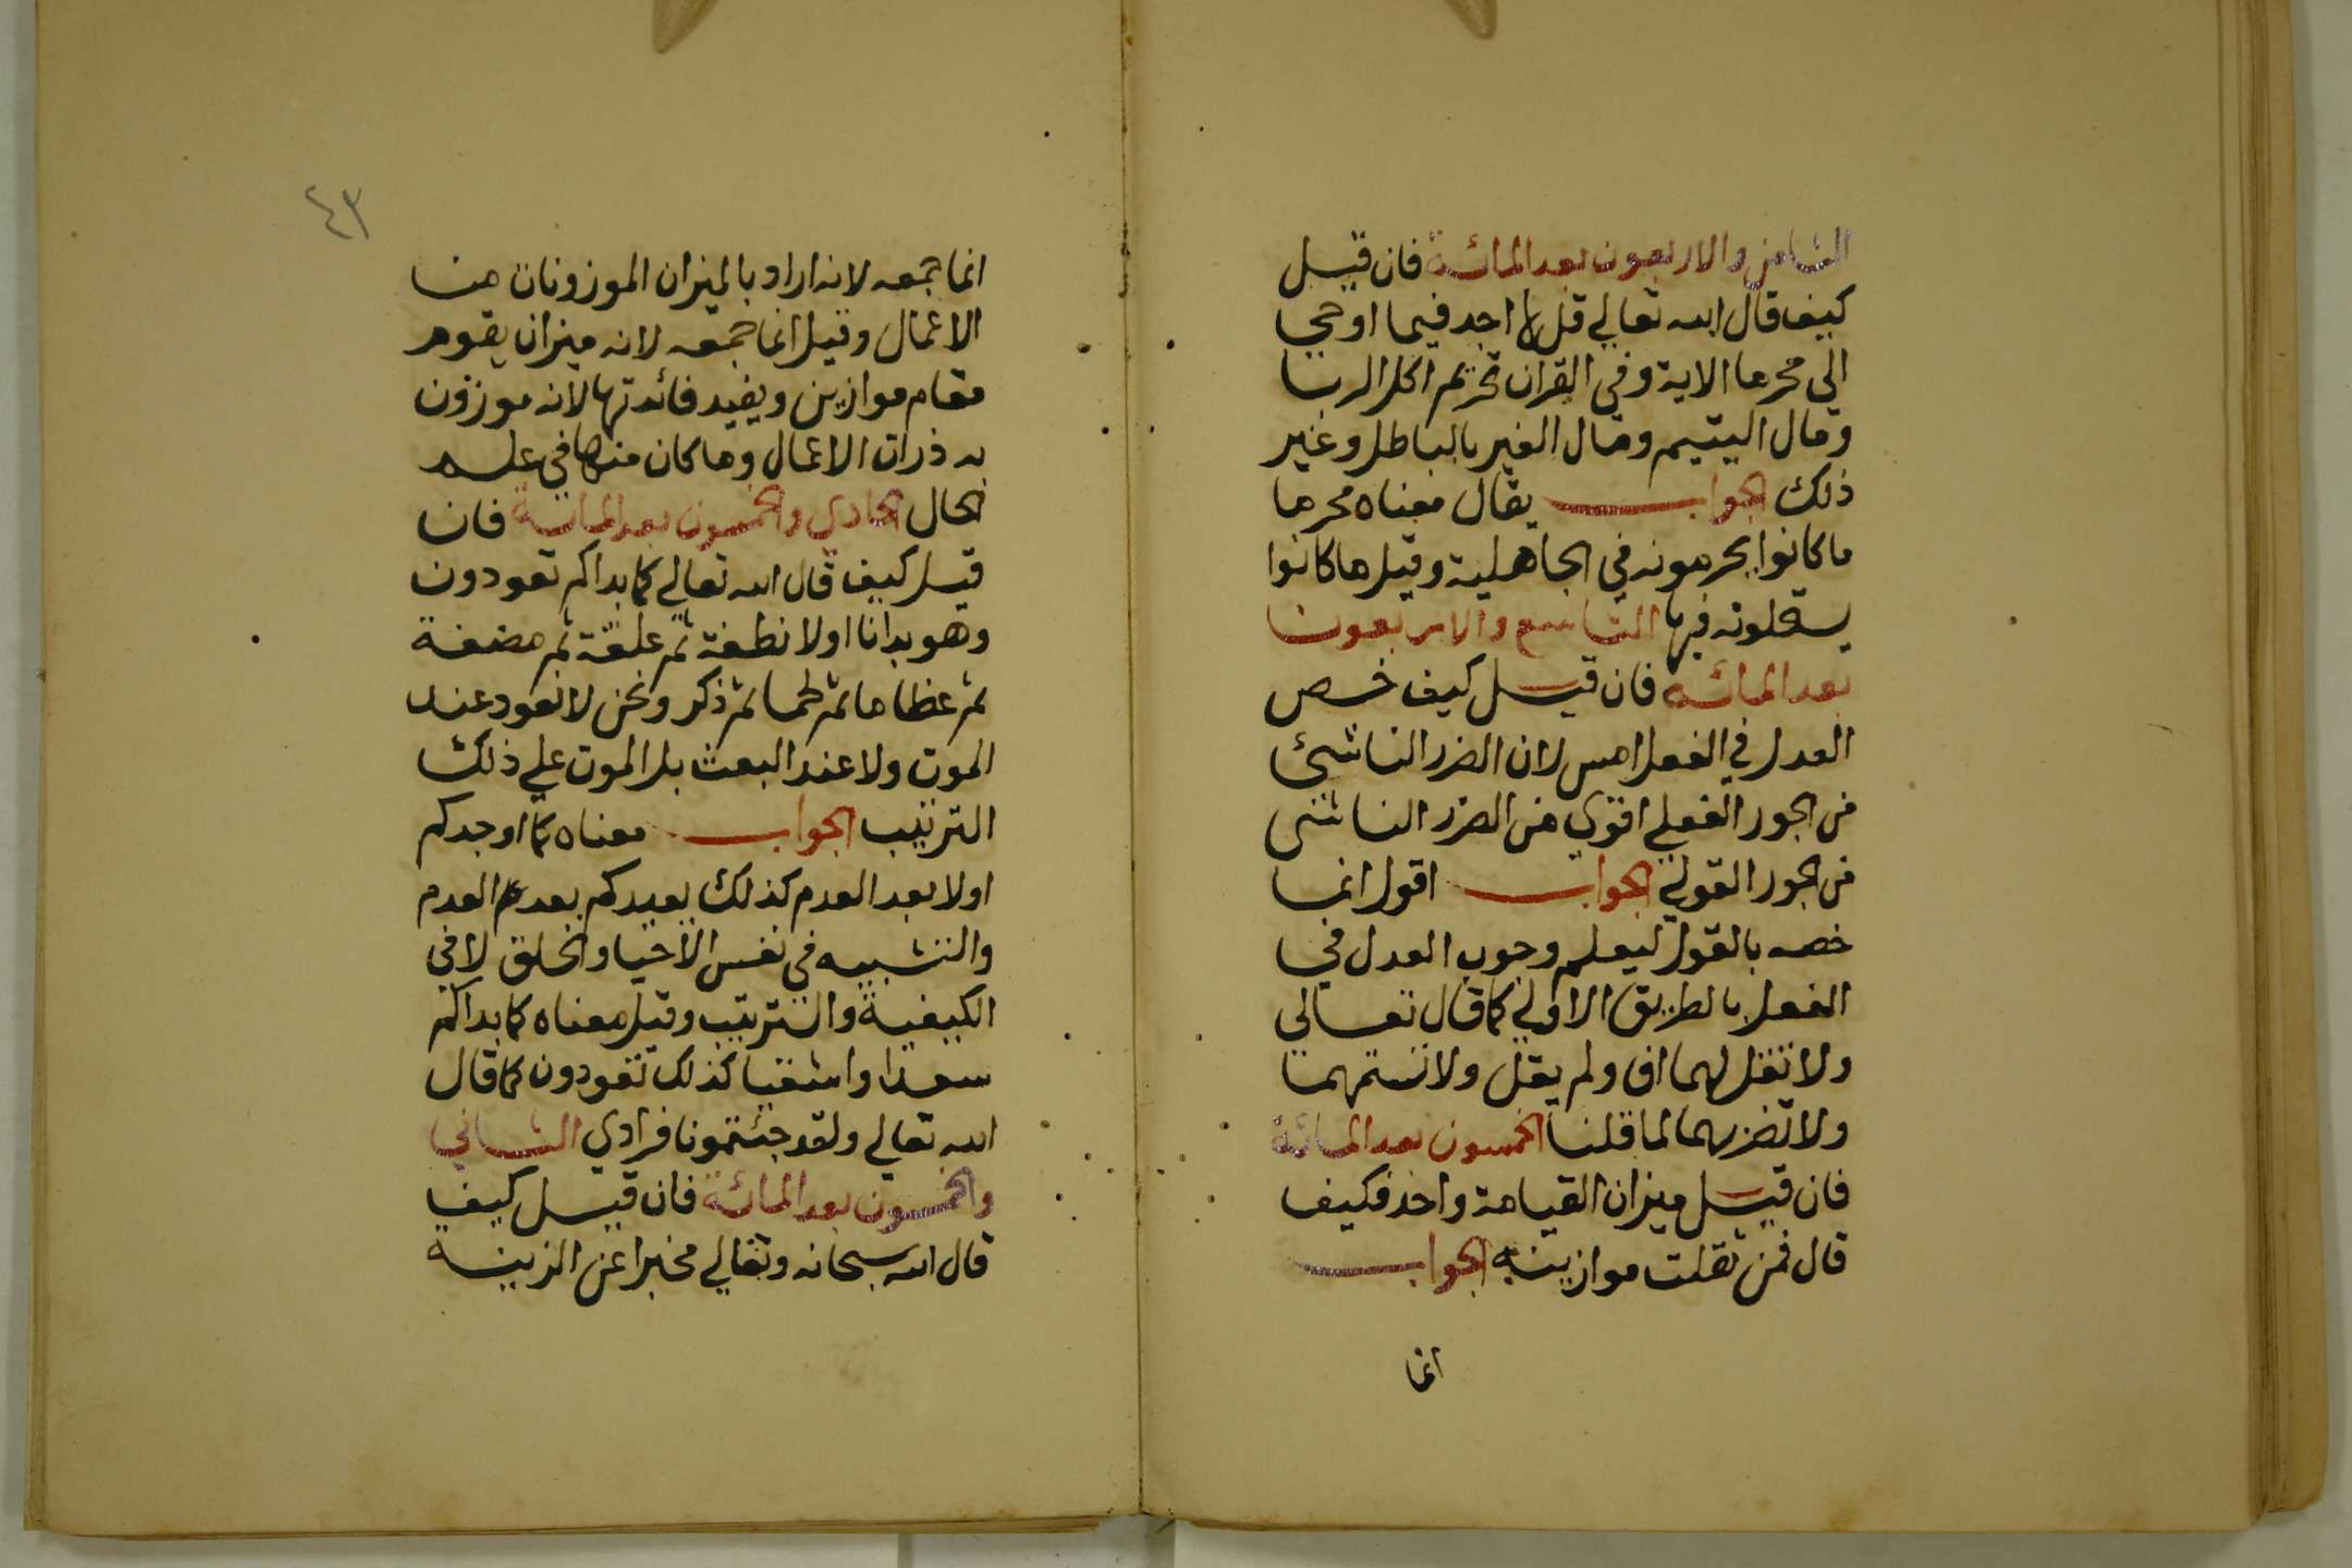 الثامن والاربعون بعد المائة فان قيل
كيف قال الله تعالي قل لا اجد فيما اوحي
الي محرما الاية وفي القران تحريم اكل الربا
ومال اليتيم ومال الغير بالباطل وغير
ذلك الجواب يقال معناه محرما
ما كانوا يحرمونه في الجاهلية وقيل ما كانوا
يستحلونه فيها التاسع والاربعون
بعد المائة فان قيل كيف خص
العدل في الفعل امس لان الضرر الناشئ
من الجور الفعلي اقوي من الضرر الناشئ
من الجور القولي الجواب اقول انما
خصه بالقول ليعلم وجوب العدل في
الفعل بالطريق الاولي كما قال تعالي
ولا تقل لهما اف ولم يقل ولا تشتمهما
ولا تضربهما لما قلنا الخمسون بعد المائة
فان قيل ميزان القيامة واحد فكيف
قال فمن ثقلت موازينه الجواب
انما
٤٣
انما جمعه لانه اراد بالميزان الموزونات من
الاعمال وقيل انما جمعه لانه ميزان يقوم
مقام موازين ويفيد فائدتها لانه موزون
به ذرات الاعمال وما كان منها في علم
الحال الحادي والخمسون بعد المائة فان
قيل كيف قال الله تعالي كما بداكم تعودون
وهو بدانا اولا نطفة ثم علقة ثم مضغة
ثم عظاما ثم لحما ثم ذكر ونحن لا نعود عند
الموت ولا عند البعث بل الموت علي ذلك
الترتيب الجواب معناه كما اوجدكم
اولا بعد العدم كذلك يعيدكم بعد العدم
والتشبيه في نفس الاحيا والخلق لا في
الكيفية والترتيب وقيل معناه كما بداكم
سعدا واشقيا كذلك تعودون كما قال
الله تعالي ولقد جئتمونا فرادي الثاني
والخمسون بعد المائة فان قيل كيف
قال الله سبحانه وتعالي مخبرا عن الزينة